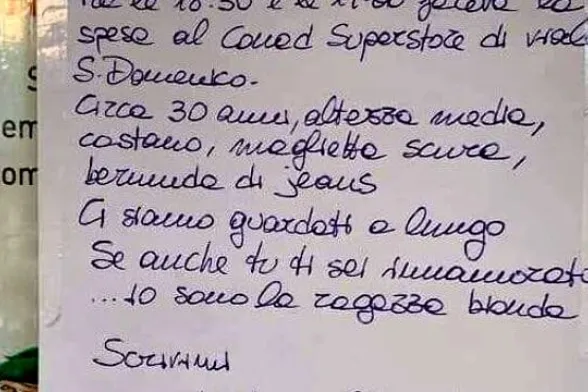 le 18:30 e le faceva la
spesa al Conad Superstore di vial
S. Domenico.
Circa 30 anni, altezza media,
castano, maglietta scura,
bermuda di jeans
Ci siamo guardati a lungo
Se anche tu ti sei innamorato
...io sono la ragazza bionda
Scrivimi
em
om